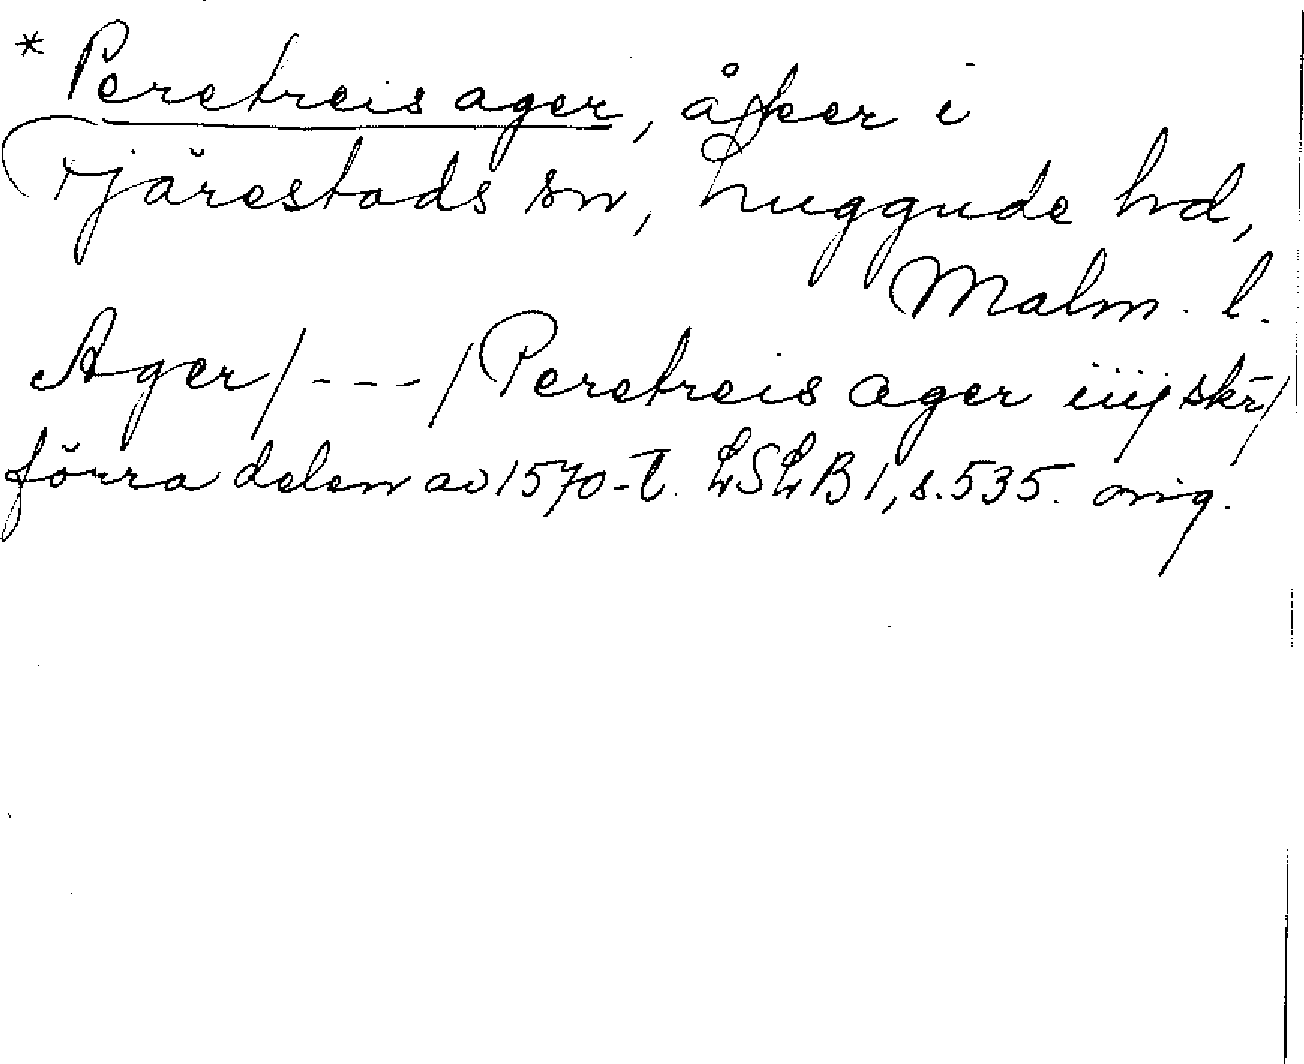 * Peretreis ager, åker i
Fjärestads sn, Luggude hd,
Malm. l.
Ager /---/ Peretreis ager iiij skr̄/
förra delen av 1570-t. LSLB 1, s. 535. orig.